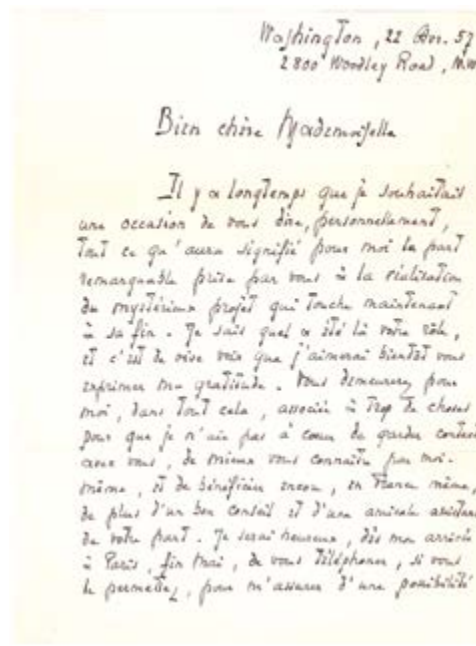 Washington, 22 Avr. 57
2800 Woodley Road, N.W
Bien chère Mademoiselle
Il y a longtemps que je souhaitais
une occasion de vous dire, personnellement,
tout ce qu'aura signifié pour moi la part
remarquable prise par vous à la réalisation
du mystérieux projet qui touche maintenant
à sa fin. Je sais quel a été là votre rôle,
et c'est de vive voix que j'aimerai bientôt vous
exprimer ma gratitude. Vous demeurez pour
moi, dans tout cela, associée à trop de choses
pour que je n'aie pas à cœur de garder contact
avec vous, de mieux vous connaître par moi-
même, et de bénéficier encore, en France même,
de plus d'un bon conseil et d'une amicale assistance
de votre part. Je serai heureux, dès mon arrivée
à Paris, fin Mai, de vous téléphoner, si vous
le permettez, pour m'assurer d'une possibilité